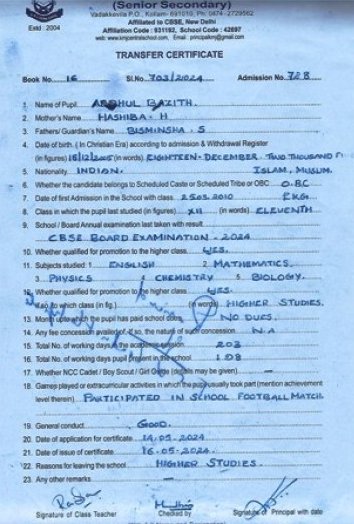 (Senior Secondary)
Vadakkevila P.O., Kollam- 691010, Ph: 0474 -2729562
Affiliated to CBSE, New Delhi
Affiliation Code : 931192, School Code : 42897
Estd : 2004
TRANSFER CERTIFICATE
Book No. 16 Sl.No. 703/2024 Admission No. 728
1. Name of Pupil ABDHUL BAZITH.
2. Mother's Name HASHIBA. H
3. Fathers/ Guardian's Name BISMINSHA. S
4. Date of birth. ( In Christian Era) according to admission & Withdrawal Register
(in figures) 18/12/2005 (in words) EIGHTEEN. DECEMBER. TWO THOUSAND FI
5. Nationality INDIAN. ISLAM, MUSLIM.
6. Whether the candidate belongs to Scheduled Caste or Scheduled Tribe or OBC O.BC
7. Date of first Admission in the School with class. 25.05.2010
8. Class in which the pupil last studied (in figures) XII (in words) ELEVENTH
9. School / Board Annual examination last taken with result
CBSE BOARD EXAMINATION - 2024
10. Whether qualified for promotion to the higher class YES.
11. Subjects studied: 1. ENGLISH 2. MATHEMATICS.
3. PHYSICS 4. CHEMISTRY 5. BIOLOGY.
12. Whether qualified for promotion to the higher class YES.
to which class (in fig.) (in words) HIGHER STUDIES.
13. Month upto which the pupil has paid school dues NO DUES.
14. Any fee concession availed of. If so, the nature of such concession N.A
15. Total No. of working days in the academic session 203
16. Total No. of working days pupil present in the school 198
17. Whether NCC Cadet / Boy Scout / Girl Guide (details may be given) —
18. Games played or extracurricular activities in which the pupil usually took part (mention achievement
level therein) PARTICIPATED IN SCHOOL FOOTBALL MATCH.
19. General conduct GOOD.
20. Date of application for certificate 14.05.2024
21. Date of issue of certificate 16.05.2024.
22. Reasons for leaving the school HIGHER STUDIES
23. Any other remarks —
Signature of Class Teacher Checked by Signature of Principal with date